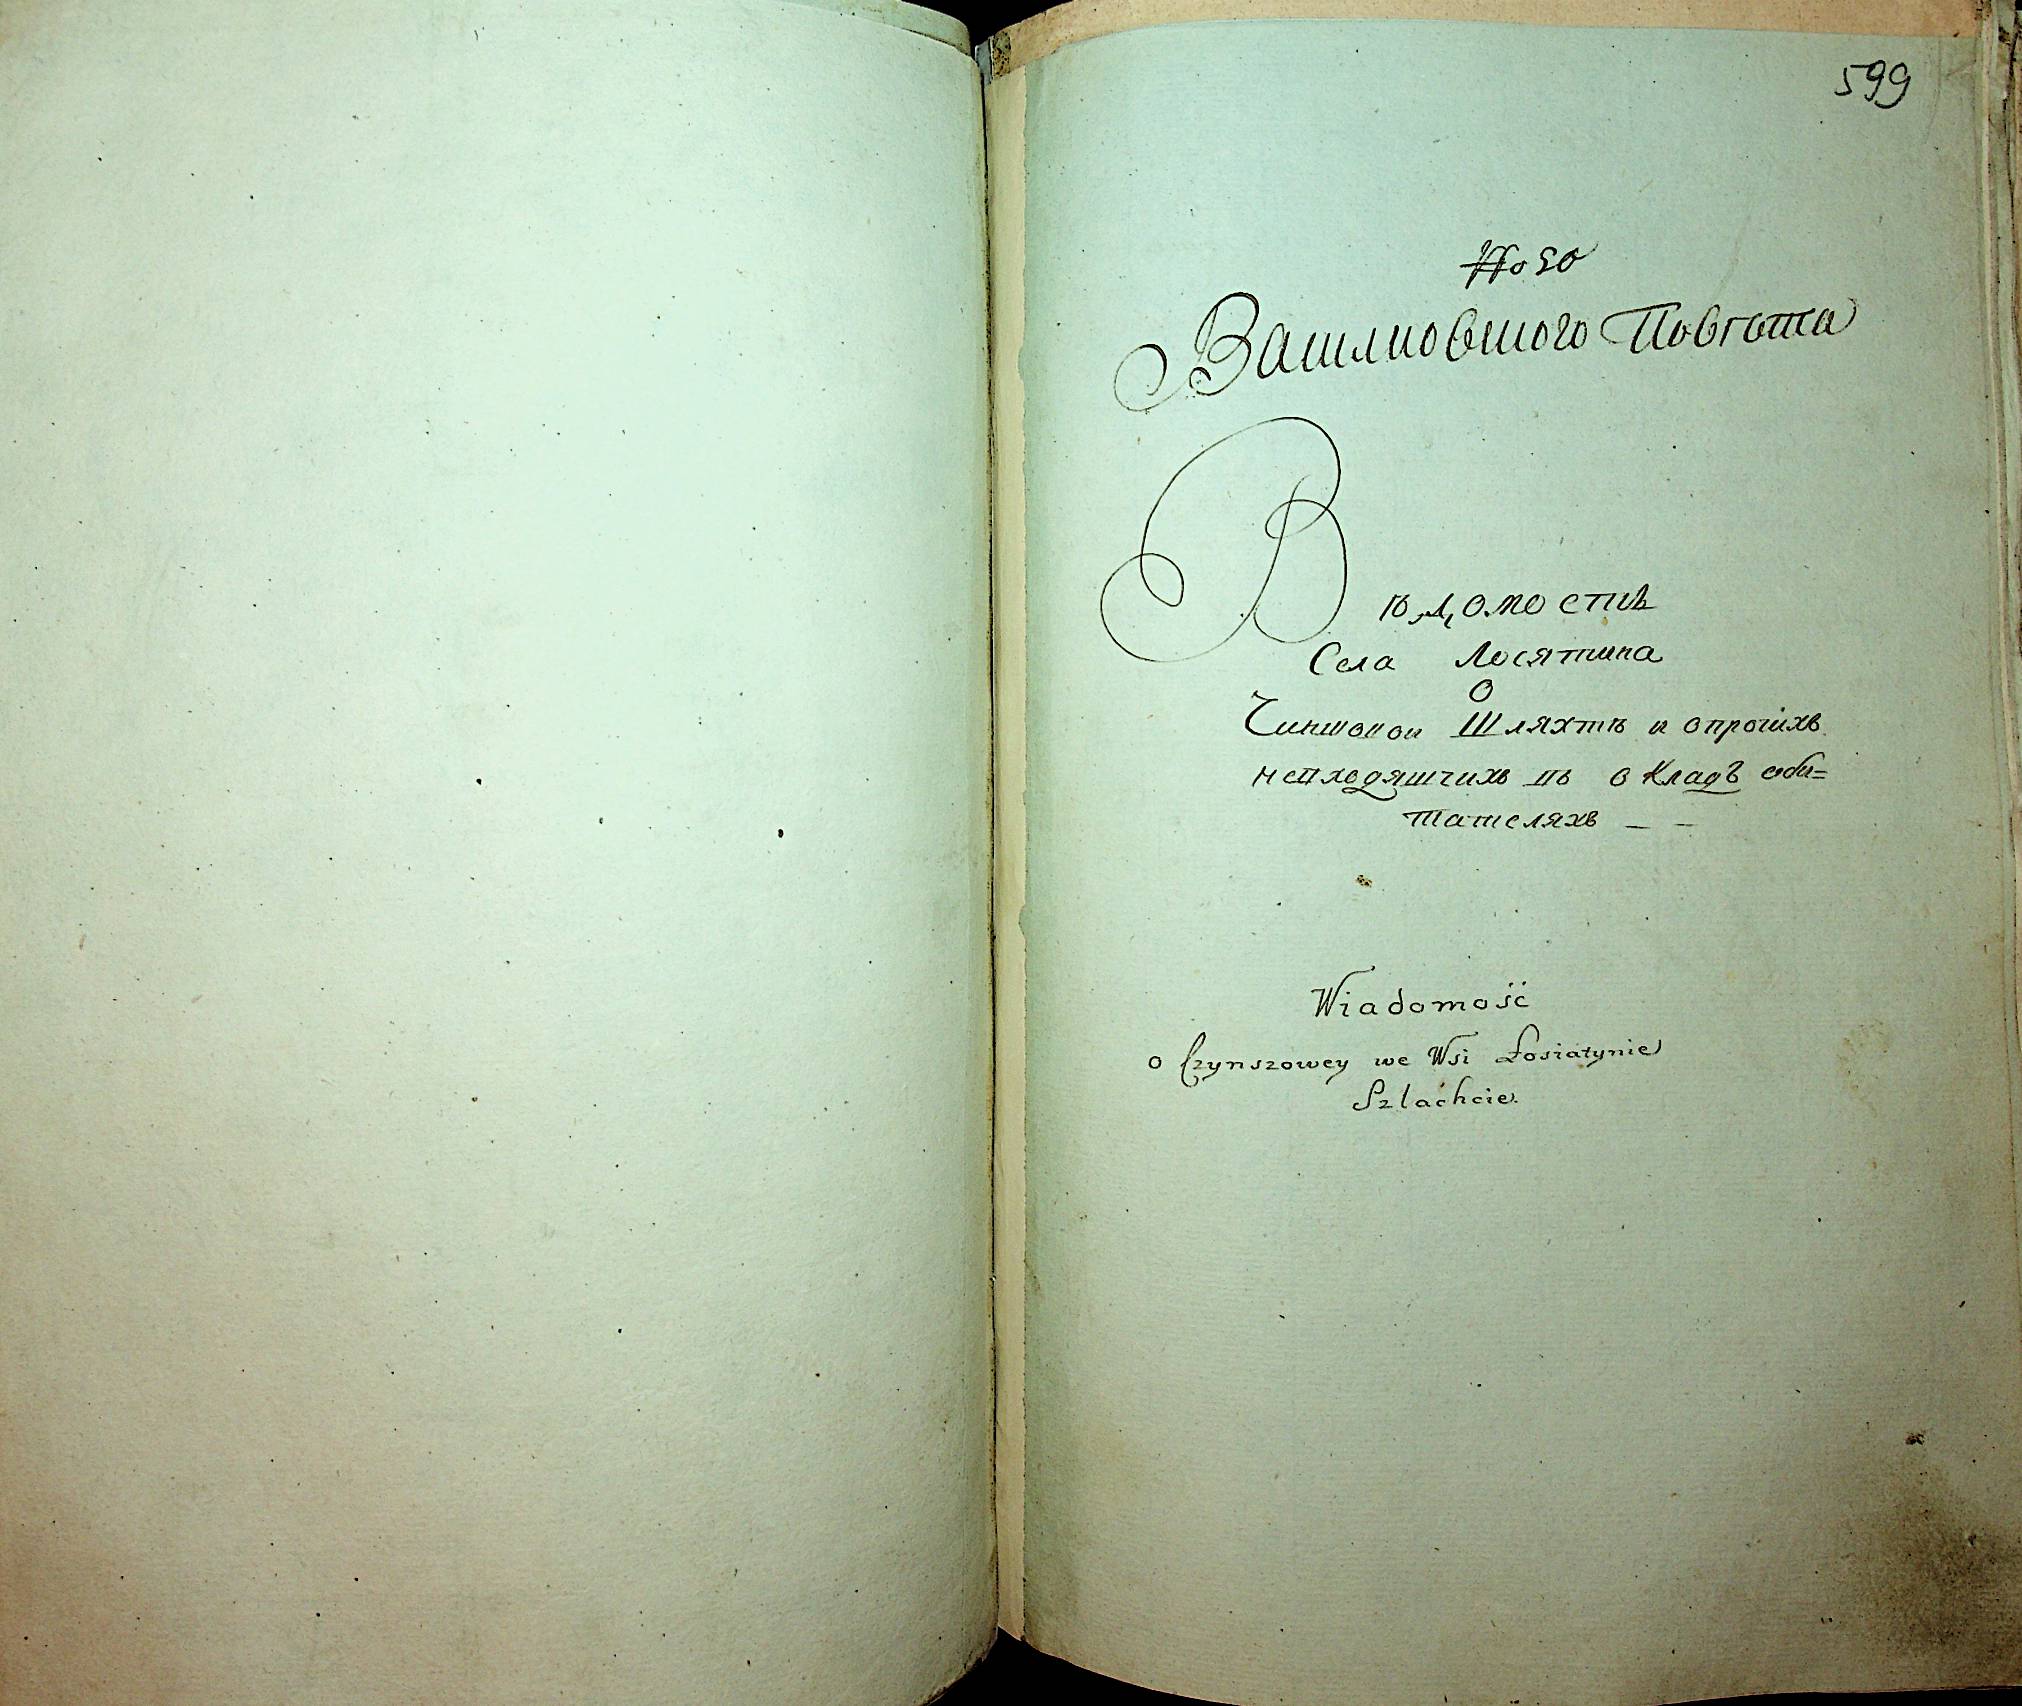 599
No 50
Васильковского Повѣта
Вѣдомость
Села Лосятина
О
Чиншовой Шляхтѣ и опрочихъ
невходящихъ въ окладъ оби=
тателяхъ – –
Wiadomość
o Czynszowey we Wsi Łosiatynie
Szlachcie.